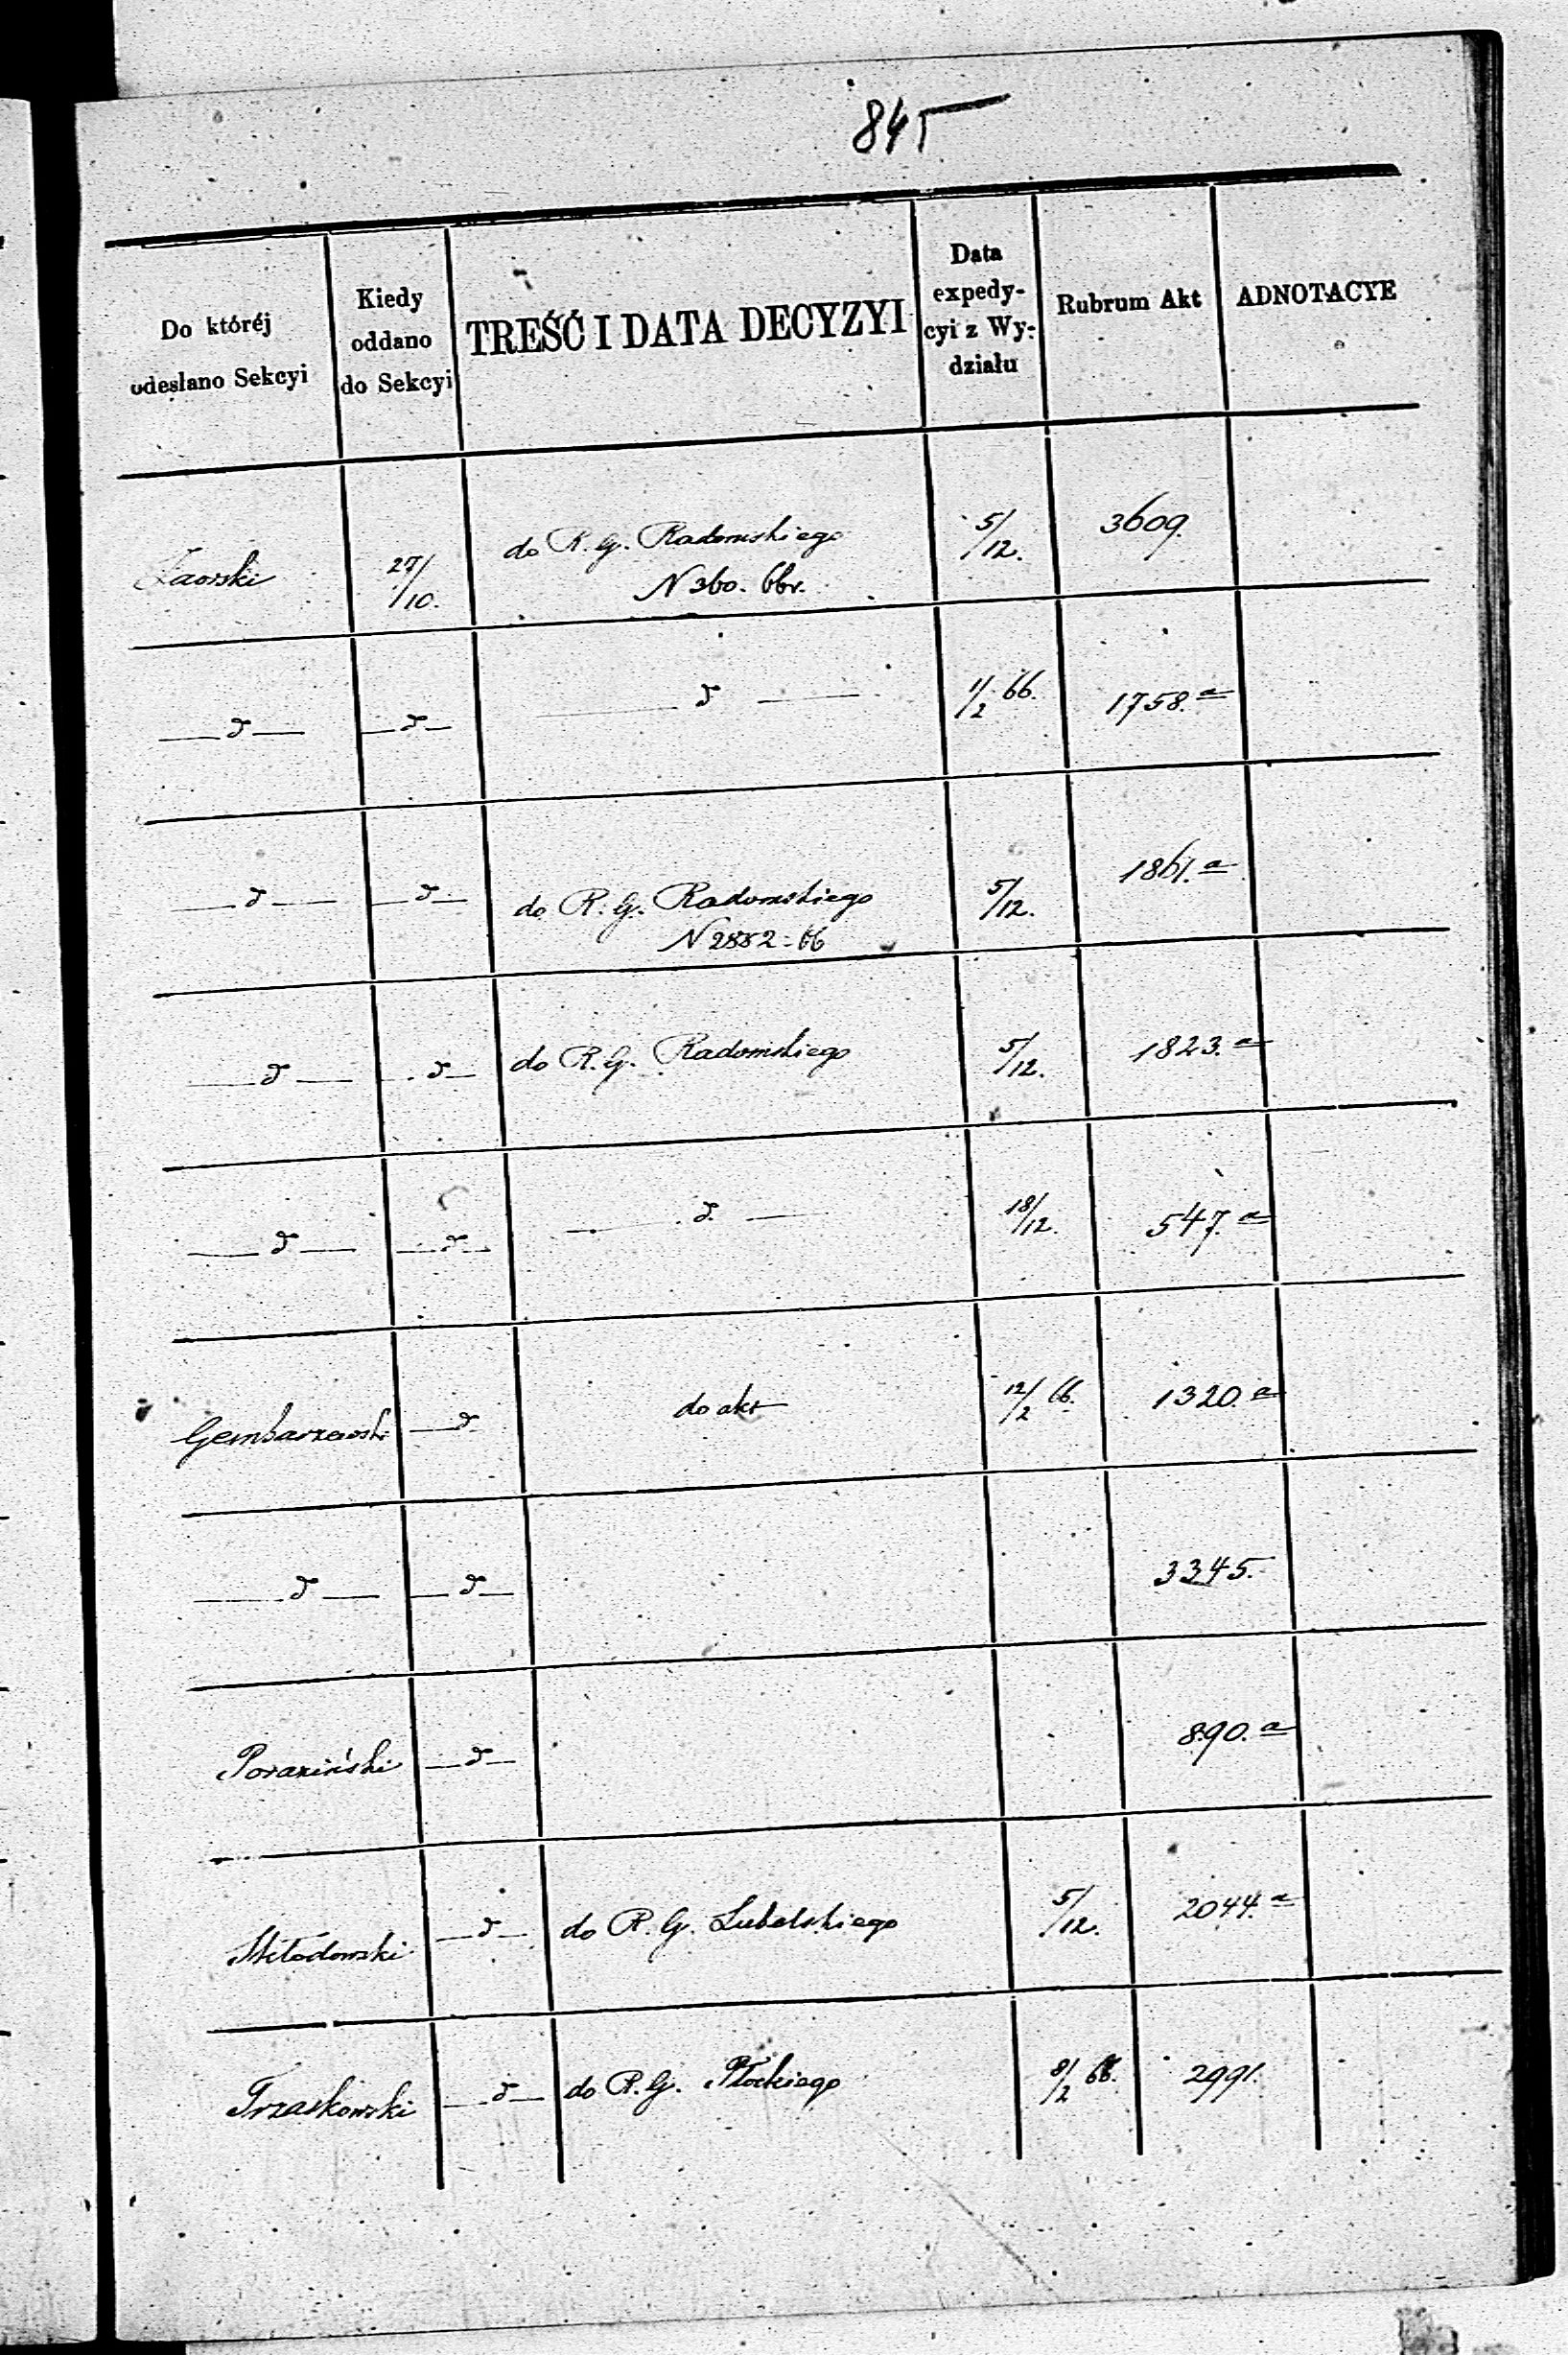 845
Do któréj
odesłano Sekcyi
Kiedy
oddano
do Sekcyi
TREŚĆ I DATA DECYZYI
Data
expedy-
cyi z Wy-
działu
Rubrum Akt
ADNOTACYE
Zaorski
27/10.
do R. G. Radomskiego
N 360. 66r.
5/12.
3609.
— d — — d — — d — 1/2 66. 1758. a
— d — — d — do R. G. Radomskiego 5/12. 1861. a
N 2882 - 66
— d — — d — do R. G. Radomskiego 5/12. 1823. a
— d — — d — — d. — 18/12. 547. a
Gembarzewski — d do akt 12/2 66. 1320. a
— d — — d — 3345.
Poraziński — d — 890. a
— d — do R. G. Lubelskiego 5/12. 2044. a
Trzaskowski — d — do R. G. Płockiego 8/2 66. 2991.